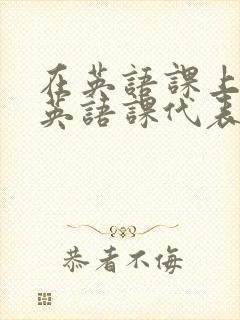 在英語課上
英語課代表
恭者不侮